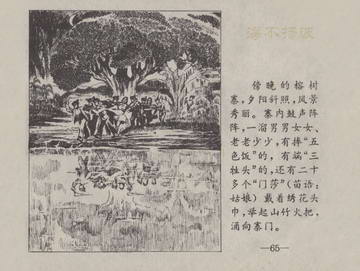 傍晚的榕树
寨，夕阳斜照，风景
秀丽。寨内鼓声阵
阵，一溜男男女女、
老老少少，有捧“五
色饭”的，有端“三
牲头”的，还有二十
多个“门莎”（苗语：
姑娘）戴着绣花头
巾，举起山竹火把，
涌向寨门。
—65—